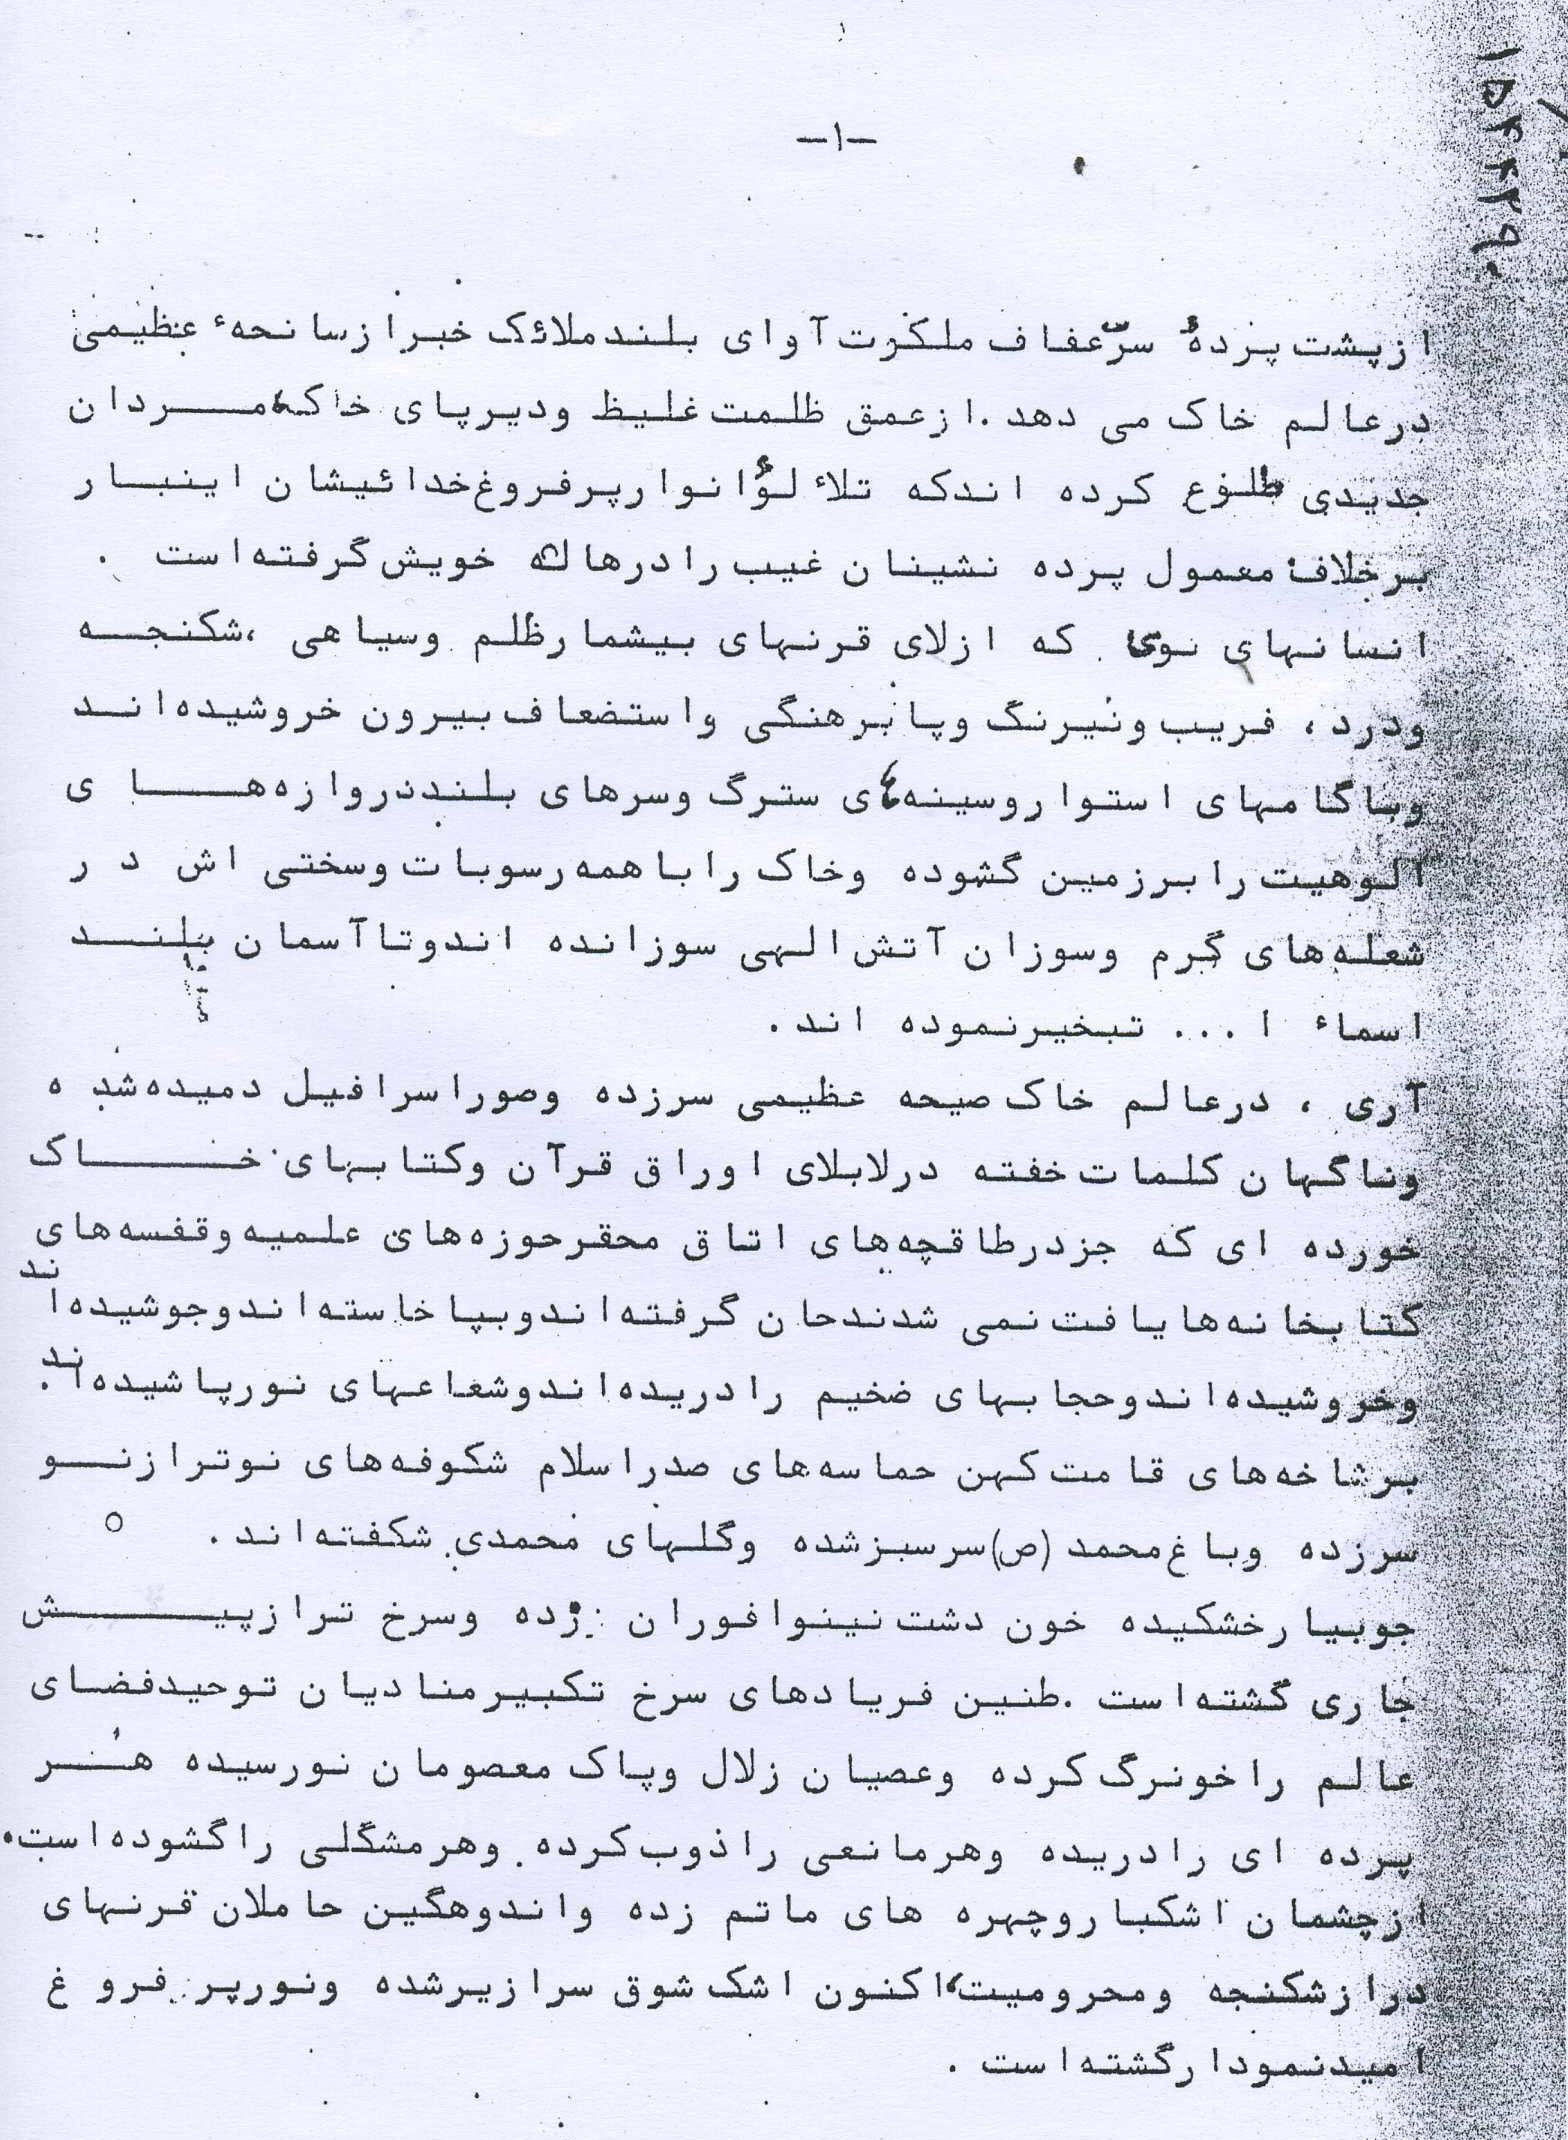 ۱۵۴۴۳۹۰
-۱-
از پشت پرده سرّ عفاف ملکوت آوای بلند ملائک خبر از سانحهٔ عظیمی
در عالم خاک می دهد . از عمق ظلمت غلیظ و دیرپای خاک، مردان
جدیدی طلوع کرده اند که تلاٴلؤ انوار پر فروغ خدائیشان اینبار
بر خلاف معمول پرده نشینان غیب را در هاله خویش گرفته است .
انسانهای نوی که از لای قرنهای بیشمار ظلم و سیاهی ، شکنجه
و درد ، فریب و نیرنگ و پا برهنگی و استضعاف بیرون خروشیده اند
و با گامهای استوار و سینه های سترگ و سرهای بلند دروازه های
الوهیت را بر زمین گشوده و خاک را با همه رسوبات و سختی اش در
شعله های گرم و سوزان آتش الهی سوزانده اند و تا آسمان بلند
اسماء ا ... تبخیر نموده اند .
آری ، در عالم خاک صیحه عظیمی سر زده و صور اسرافیل دمیده شده
و ناگهان کلمات خفته در لابلای اوراق قرآن و کتابهای خاک
خورده ای که جز در طاقچه های اتاق محقر حوزه های علمیه و قفسه های
کتابخانه ها یافت نمی شدند جان گرفته اند و بپا خاسته اند و جوشیده اند
و خروشیده اند و حجابهای ضخیم را دریده اند و شعاعهای نور پاشیده اند .
بر شاخه های قامت کهن حماسه های صدر اسلام شکوفه های نوتر از نو
سر زده و باغ محمد (ص) سرسبز شده و گلهای محمدی شکفته اند .
جویبار خشکیده خون دشت نینوا فوران زده و سرخ تر از پیش
جاری گشته است . طنین فریادهای سرخ تکبیر منادیان توحید فضای
عالم را خونرگ کرده و عصیان زلال و پاک معصومان نورسیده هر
پرده ای را دریده و هر مانعی را ذوب کرده و هر مشگلی را گشوده است .
از چشمان اشکبار و چهره های ماتم زده و اندوهگین حاملان قرنهای
دراز شکنجه و محرومیت، اکنون اشک شوق سرازیر شده و نور پر فروغ
امید نمودار گشته است .